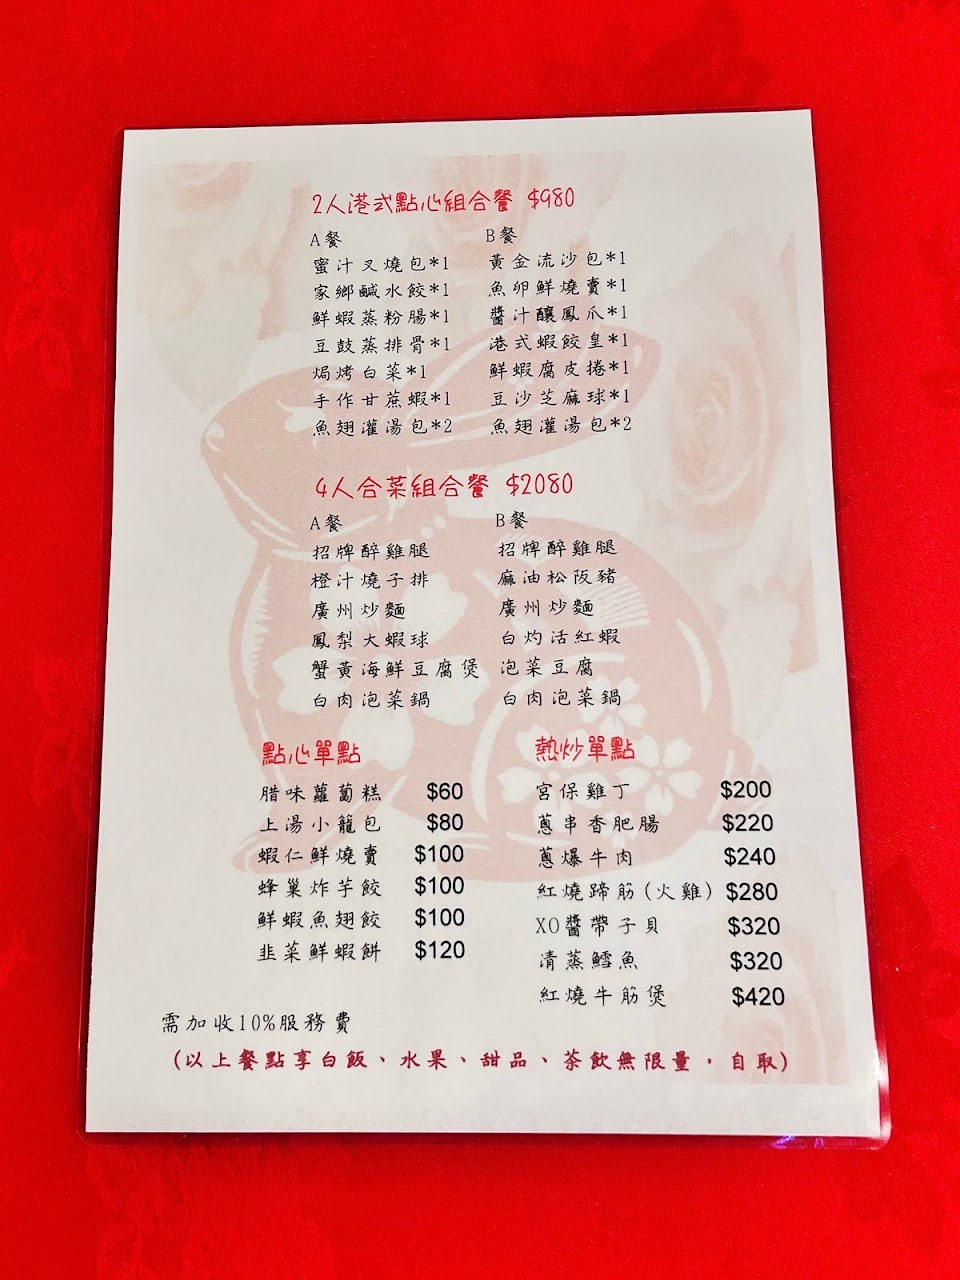 2人港式點心組合餐 $980
A餐
蜜汁叉燒包*1
家鄉鹹水餃*1
鮮蝦蒸粉腸*1
豆鼓蒸排骨*1
焗烤白菜*1
手作甘蔗蝦*1
魚翅灌湯包*2
B餐
黃金流沙包*1
魚卵鮮燒賣*1
醬汁釀鳳爪*1
港式蝦餃皇*1
鮮蝦腐皮捲*1
豆沙芝麻球*1
魚翅灌湯包*2
4人合菜組合餐 $2080
A餐
招牌醉雞腿
橙汁燒子排
廣州炒麵
鳳梨大蝦球
蟹黃海鮮豆腐煲
白肉泡菜鍋
B餐
招牌醉雞腿
麻油松阪豬
廣州炒麵
白灼活紅蝦
泡菜豆腐
白肉泡菜鍋
點心單點
腊味蘿蔔糕 $60
上湯小籠包 $80
蝦仁鮮燒賣 $100
蜂巢炸芋餃 $100
鮮蝦魚翅餃 $100
韭菜鮮蝦餅 $120
熱炒單點
宮保雞丁 $200
蔥串香肥腸 $220
蔥爆牛肉 $240
紅燒蹄筋(火雞) $280
XO醬帶子貝 $320
清蒸鱈魚 $320
紅燒牛筋煲 $420
需加收10%服務費
(以上餐點享白飯、水果、甜品、茶飲無限量，自取)